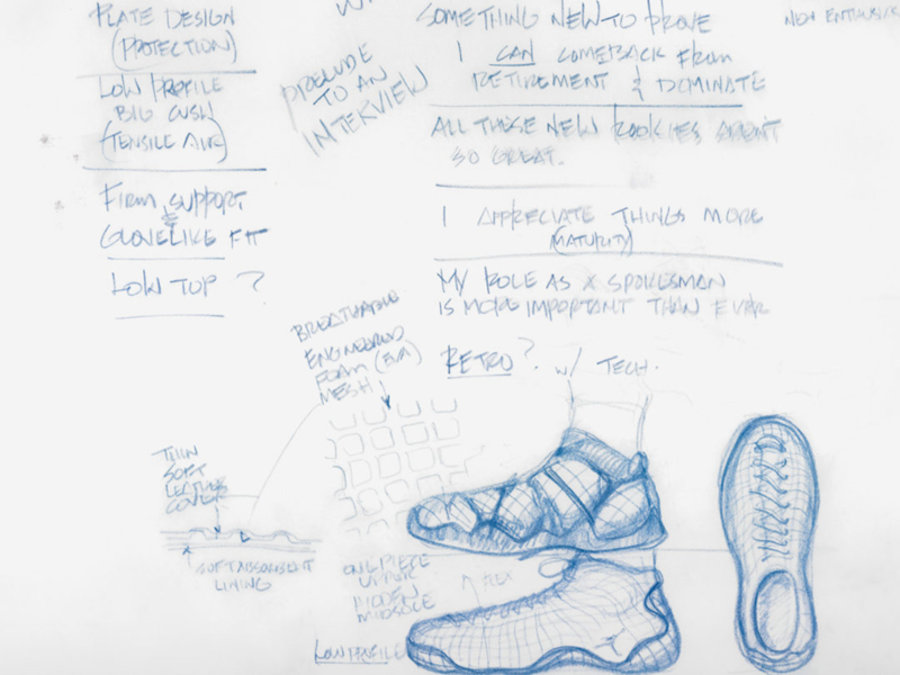 PLATE DESIGN
(PROTECTION)
LOW PROFILE
BIG CUSH
(TENSILE AIR)
FIRM SUPPORT
&
GLOVELIKE FIT
LOW TOP ?
PRELUDE
TO AN
INTERVIEW
SOMETHING NEW TO PROVE
I CAN COMEBACK FROM
RETIREMENT & DOMINATE
ALL THESE NEW ROOKIES AREN'T
SO GREAT.
I APPRECIATE THINGS MORE
(MATURITY)
MY ROLE AS A SPOKESMAN
IS MORE IMPORTANT THAN EVER
RETRO? W/ TECH.
NON ENTHUSIAS
BREATHABLE
ENGINEERED
FOAM (EVA)
MESH
THIN
SOFT
LEATHER
COVER
SOFT ABSORBENT
LINING
ONE PIECE
UPPER
HIDDEN
MIDSOLE
FLEX
LOW PROFILE